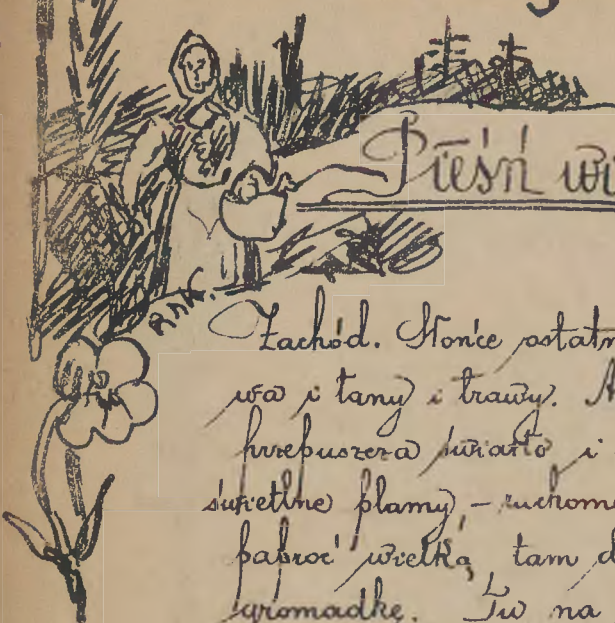 Pieśń wi
RAK.
Zachód. Słońce ostatn
wa i łany i trawy. A
przepuszcza światło i
świetlne plamy, - ruchome
paproć wielką, tam d
gromadkę. Tu na